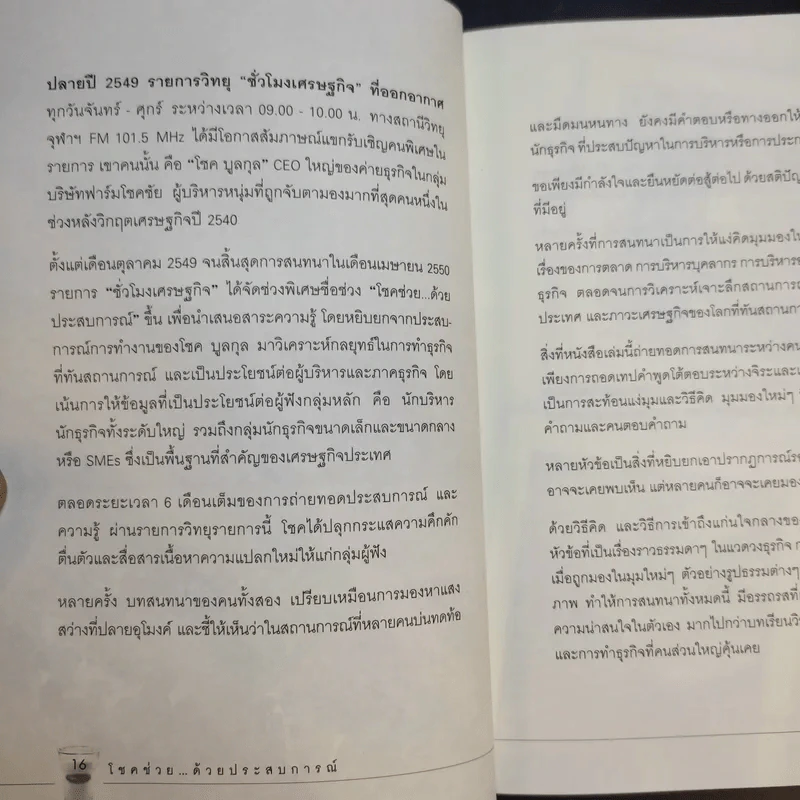 ปลายปี 2549 รายการวิทยุ “ชั่วโมงเศรษฐกิจ” ที่ออกอากาศ
ทุกวันจันทร์ - ศุกร์ ระหว่างเวลา 09.00 - 10.00 น. ทางสถานีวิทยุ
จุฬาฯ FM 101.5 MHz ได้มีโอกาสสัมภาษณ์แขกรับเชิญคนพิเศษใน
รายการ เขาคนนั้น คือ “โชค บูลกุล” CEO ใหญ่ของค่ายธุรกิจในกลุ่ม
บริษัทฟาร์มโชคชัย ผู้บริหารหนุ่มที่ถูกจับตามองมากที่สุดคนหนึ่งใน
ช่วงหลังวิกฤตเศรษฐกิจปี 2540
ตั้งแต่เดือนตุลาคม 2549 จนสิ้นสุดการสนทนาในเดือนเมษายน 2550
รายการ “ชั่วโมงเศรษฐกิจ” ได้จัดช่วงพิเศษชื่อช่วง “โชคช่วย...ด้วย
ประสบการณ์” ขึ้น เพื่อนำเสนอสาระความรู้ โดยหยิบยกจากประสบ-
การณ์การทำงานของโชค บูลกุล มาวิเคราะห์กลยุทธ์ในการทำธุรกิจ
ที่ทันสถานการณ์ และเป็นประโยชน์ต่อผู้บริหารและภาคธุรกิจ โดย
เน้นการให้ข้อมูลที่เป็นประโยชน์ต่อผู้ฟังกลุ่มหลัก คือ นักบริหาร
นักธุรกิจทั้งระดับใหญ่ รวมถึงกลุ่มนักธุรกิจขนาดเล็กและขนาดกลาง
หรือ SMEs ซึ่งเป็นพื้นฐานที่สำคัญของเศรษฐกิจประเทศ
ตลอดระยะเวลา 6 เดือนเต็มของการถ่ายทอดประสบการณ์ และ
ความรู้ ผ่านรายการวิทยุรายการนี้ โชคได้ปลุกกระแสความคึกคัก
ตื่นตัวและสื่อสารเนื้อหาความแปลกใหม่ให้แก่กลุ่มผู้ฟัง
หลายครั้ง บทสนทนาของคนทั้งสอง เปรียบเหมือนการมองหาแสง
สว่างที่ปลายอุโมงค์ และชี้ให้เห็นว่าในสถานการณ์ที่หลายคนบ่นทดท้อ
16 โชคช่วย...ด้วยประสบการณ์
และมืดมนหนทาง ยังคงมีคำตอบหรือทางออกให้
นักธุรกิจ ที่ประสบปัญหาในการบริหารหรือการประก
ขอเพียงมีกำลังใจและยืนหยัดต่อสู้ต่อไป ด้วยสติปัญ
ที่มีอยู่
หลายครั้งที่การสนทนาเป็นการให้แง่คิดมุมมองใน
เรื่องของการตลาด การบริหารบุคลากร การบริหาร
ธุรกิจ ตลอดจนการวิเคราะห์เจาะลึกสถานการณ์
ประเทศ และภาวะเศรษฐกิจของโลกที่ทันสถานกา
สิ่งที่หนังสือเล่มนี้ถ่ายทอดการสนทนาระหว่างคน
เพียงการถอดเทปคำพูดโต้ตอบระหว่างจิระและ
เป็นการสะท้อนแง่มุมและวิธีคิด มุมมองใหม่ๆ
คำถามและคนตอบคำถาม
หลายหัวข้อเป็นสิ่งที่หยิบยกเอาปรากฏการณ์ร
อาจจะเคยพบเห็น แต่หลายคนก็อาจจะเคยมอง
ด้วยวิธีคิด และวิธีการเข้าถึงแก่นใจกลางของ
หัวข้อที่เป็นเรื่องราวธรรมดาๆ ในแวดวงธุรกิจ ก
เมื่อถูกมองในมุมใหม่ๆ ตัวอย่างรูปธรรมต่างๆ
ภาพ ทำให้การสนทนาทั้งหมดนี้ มีอรรถรสที่
ความน่าสนใจในตัวเอง มากไปกว่าบทเรียนวิ
และการทำธุรกิจที่คนส่วนใหญ่คุ้นเคย